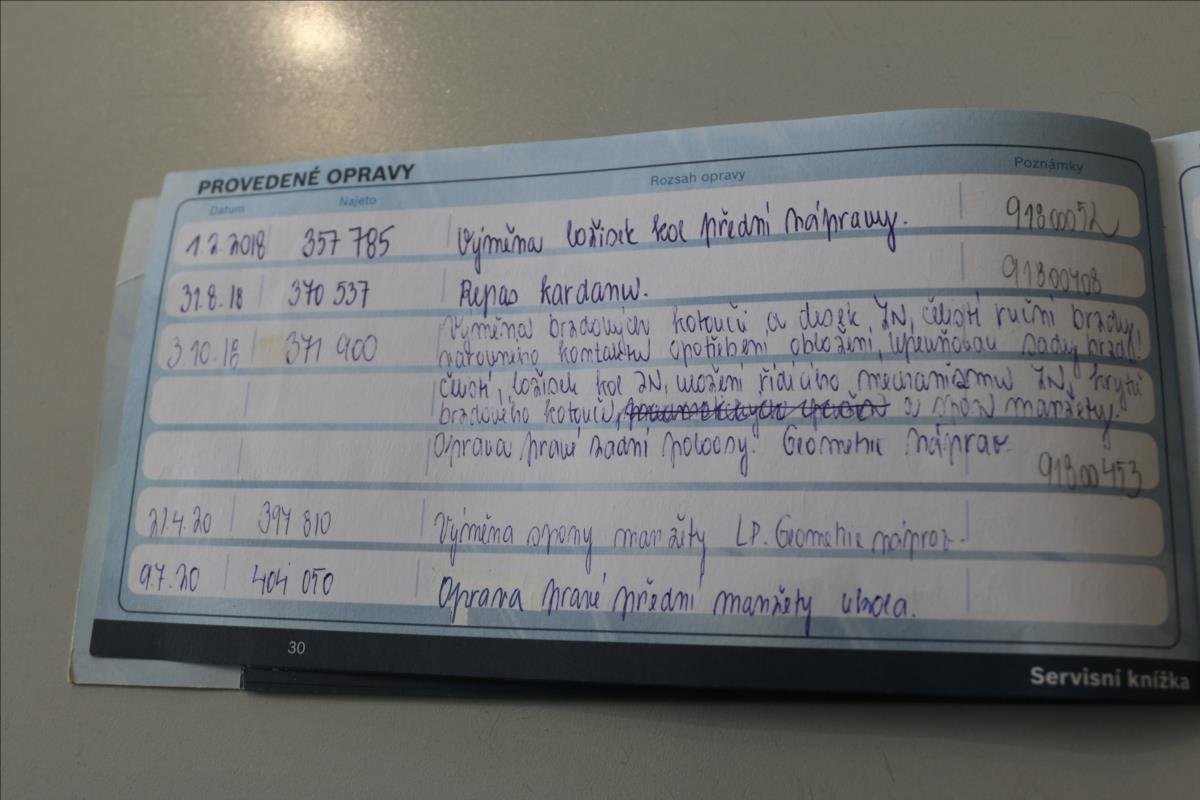 PROVEDENÉ OPRAVY
Datum Najeto Rozsah opravy Poznámky
1.2.2018 357 785 Výměna ložisek kol přední nápravy. 91800052
31.8.18 370 537 Repas kardanu. 91800408
3.10.18 371 900 Výměna brzdových kotoučů a desek ZN, čelistí ruční brzdy,
varovného kontaktu opotřebení obložení, upevňovací sady brzd.
čelistí, ložisek kol ZN, uložení řídícího mechanizmu ZN, krytu
brzdového kotouče, a manžety.
Oprava pravé zadní poloosy. Geometrie náprav. 91800453
21.4.20 397 810 Výměna spony manžety LP. Geometrie náprav.
9.7.20 404 050 Oprava pravé přední manžety
30
Servisní knížka